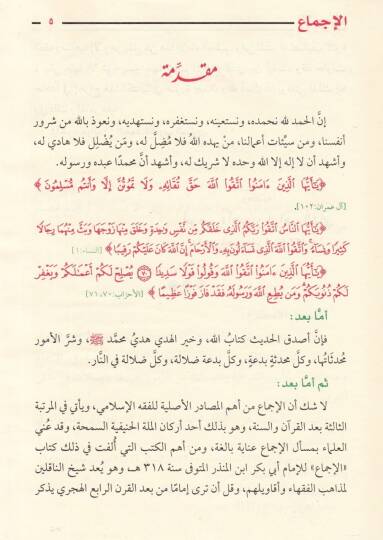 الإجماع ٥
مقدِّمة
إنَّ الحمد لله نحمده، ونستعينه، ونستغفره، ونستهديه، ونعوذ بالله من شرور
أنفسنا، ومن سيِّئات أعمالنا، منْ يهده اللهُ فلا مُضِلَّ له، ومَن يُضْلِل فلا هادي له،
وأشهد أن لا إله إلا الله وحده لا شريك له، وأشهد أنَّ محمدًا عبده ورسوله.
﴿يَٰٓأَيُّهَا ٱلَّذِينَ ءَامَنُوا۟ ٱتَّقُوا۟ ٱللَّهَ حَقَّ تُقَاتِهِۦ وَلَا تَمُوتُنَّ إِلَّا وَأَنتُم مُّسْلِمُونَ﴾
[آل عمران: ١٠٢].
﴿يَٰٓأَيُّهَا ٱلنَّاسُ ٱتَّقُوا۟ رَبَّكُمُ ٱلَّذِى خَلَقَكُم مِّن نَّفْسٍ وَٰحِدَةٍ وَخَلَقَ مِنْهَا زَوْجَهَا وَبَثَّ مِنْهُمَا رِجَالًا
كَثِيرًا وَنِسَآءً ۚ وَٱتَّقُوا۟ ٱللَّهَ ٱلَّذِى تَسَآءَلُونَ بِهِۦ وَٱلْأَرْحَامَ ۚ إِنَّ ٱللَّهَ كَانَ عَلَيْكُمْ رَقِيبًا﴾ [النساء: ١]
﴿يَٰٓأَيُّهَا ٱلَّذِينَ ءَامَنُوا۟ ٱتَّقُوا۟ ٱللَّهَ وَقُولُوا۟ قَوْلًا سَدِيدًا ۝٧٠ يُصْلِحْ لَكُمْ أَعْمَٰلَكُمْ وَيَغْفِرْ
لَكُمْ ذُنُوبَكُمْ ۗ وَمَن يُطِعِ ٱللَّهَ وَرَسُولَهُۥ فَقَدْ فَازَ فَوْزًا عَظِيمًا﴾ [الأحزاب: ٧٠، ٧١]
أمَّا بعد:
فإنَّ أصدق الحديث كتابُ الله، وخير الهدي هديُ محمَّد ﷺ، وشرَّ الأمور
مُحدثَاتُها، وكلَّ محدثةٍ بدعةٍ، وكلَّ بدعة ضلالة، وكلَّ ضلالة في النَّار.
ثم أمَّا بعد:
لا شك أن الإجماع من أهم المصادر الأصلية للفقه الإسلامي، ويأتي في المرتبة
الثالثة بعد القرآن والسنة، وهو بذلك أحد أركان الملة الحنيفية السمحة، وقد عُني
العلماء بمسائل الإجماع عناية بالغة، ومن أهم الكتب التي أُلفت في ذلك كتاب
«الإجماع» للإمام أبي بكر ابن المنذر المتوفى سنة ٣١٨ هـ، وهو يُعد شيخ الناقلين
لمذاهب الفقهاء وأقاويلهم، وقل أن ترى إمامًا من بعد القرن الرابع الهجري يذكر